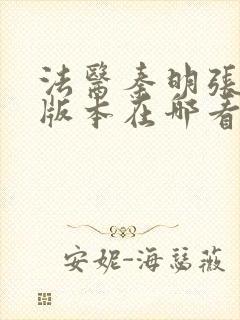 法醫秦明張
版本在哪看
安妮-海瑟薇